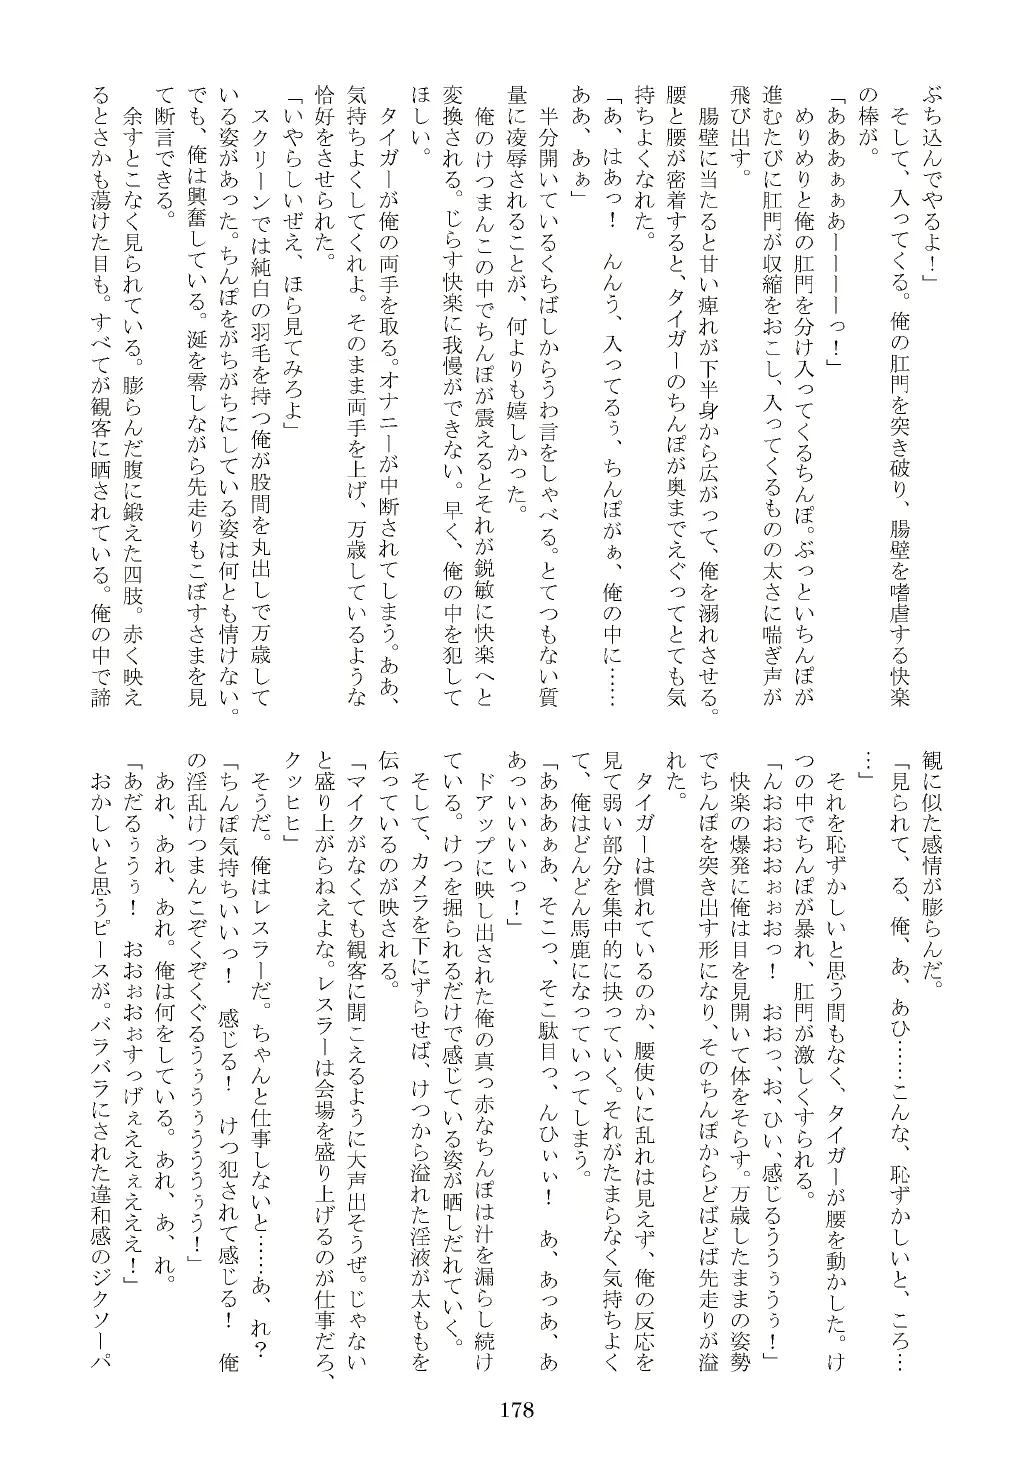 ぶち込んでやるよ！」
　そして、入ってくる。俺の肛門を突き破り、腸壁を嗜虐する快楽
の棒が。
「あああぁぁあーーーーっ！」
　めりめりと俺の肛門を分け入ってくるちんぽ。ぶっといちんぽが
進むたびに肛門が収縮をおこし、入ってくるものの太さに喘ぎ声が
飛び出す。
　腸壁に当たると甘い痺れが下半身から広がって、俺を溺れさせる。
腰と腰が密着すると、タイガーのちんぽが奥までえぐってとても気
持ちよくなれた。
「あ、はあっ！　んんう、入ってるぅ、ちんぽがぁ、俺の中に……
ああ、あぁ」
　半分開いているくちばしからうわ言をしゃべる。とてつもない質
量に凌辱されることが、何よりも嬉しかった。
　俺のけつまんこの中でちんぽが震えるとそれが鋭敏に快楽へと
変換される。じらす快楽に我慢ができない。早く、俺の中を犯して
ほしい。
　タイガーが俺の両手を取る。オナニーが中断されてしまう。ああ、
気持ちよくしてくれよ。そのまま両手を上げ、万歳しているような
恰好をさせられた。
「いやらしいぜえ、ほら見てみろよ」
　スクリーンでは純白の羽毛を持つ俺が股間を丸出しで万歳して
いる姿があった。ちんぽをがちがちにしている姿は何とも情けない。
でも、俺は興奮している。涎を零しながら先走りもこぼすさまを見
て断言できる。
　余すとこなく見られている。膨らんだ腹に鍛えた四肢。赤く映え
るとさかも蕩けた目も。すべてが観客に晒されている。俺の中で諦
観に似た感情が膨らんだ。
「見られて、る、俺、あ、あひ……こんな、恥ずかしいと、ころ…
…」
　それを恥ずかしいと思う間もなく、タイガーが腰を動かした。け
つの中でちんぽが暴れ、肛門が激しくすられる。
「んおおおおぉぉおっ！　おおっ、お、ひい、感じるううぅうぅ！」
　快楽の爆発に俺は目を見開いて体をそらす。万歳したままの姿勢
でちんぽを突き出す形になり、そのちんぽからどばどば先走りが溢
れた。
　タイガーは慣れているのか、腰使いに乱れは見えず、俺の反応を
見て弱い部分を集中的に抉っていく。それがたまらなく気持ちよく
て、俺はどんどん馬鹿になっていってしまう。
「あああぁあ、そこっ、そこ駄目っ、んひぃぃ！　あ、あっあ、あ
あっいいいいっ！」
　ドアップに映し出された俺の真っ赤なちんぽは汁を漏らし続け
ている。けつを掘られるだけで感じている姿が晒しだれていく。
　そして、カメラを下にずらせば、けつから溢れた淫液が太ももを
伝っているのが映される。
「マイクがなくても観客に聞こえるように大声出そうぜ。じゃない
と盛り上がらねえよな。レスラーは会場を盛り上げるのが仕事だろ、
クッヒヒ」
　そうだ。俺はレスラーだ。ちゃんと仕事しないと……あ、れ？
「ちんぽ気持ちいいっ！　感じる！　けつ犯されて感じる！　俺
の淫乱けつまんこぞくぞくぐるうぅうぅうううぅう！」
　あれ、あれ、あれ。俺は何をしている。あれ、あ、れ。
「あだるぅうぅ！　おおぉおぉすっげぇえええぇえええ！」
　おかしいと思うピースが。バラバラにされた違和感のジクソーパ
178